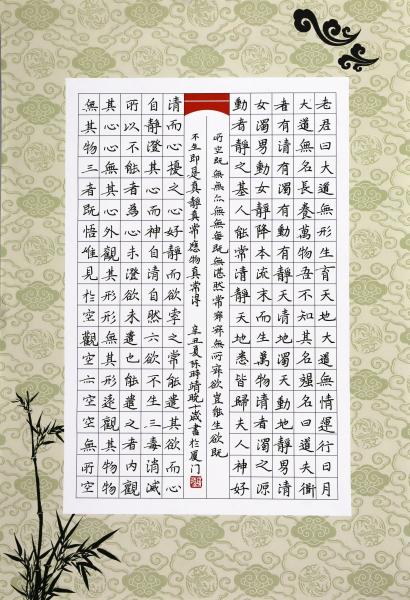 老君曰大道無形生育天地大道無情運行日月
大道無名長養萬物吾不知其名強名曰道夫衜
者有清有濁有動有靜天清地濁天動地靜男清
女濁男動女靜降本流末而生萬物清者濁之源
動者靜之基人能常清靜天地悉皆歸夫人神好
清而心擾之心好靜而欲牽之常能遣其欲而心
自靜澄其心而神自清自然六欲不生三毒消滅
所以不能者為心未澄欲未遣也能遣之者內觀
其心心無其心外觀其形形無其形遠觀其物物
無其物三者既悟惟見於空觀空亦空空無所空
所空既無無亦無無無既無湛然常寂寂無所寂欲豈能生欲既
不生即是真靜真常應物真常得 辛丑夏陈靖十歲書於厦门